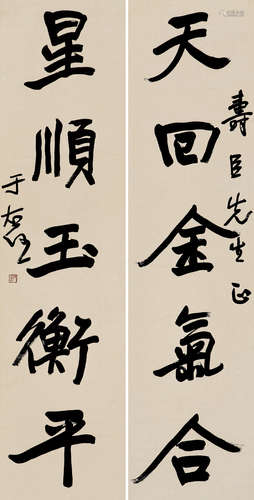 壽臣先生正
天回金氣合
星順玉衡平
于右任